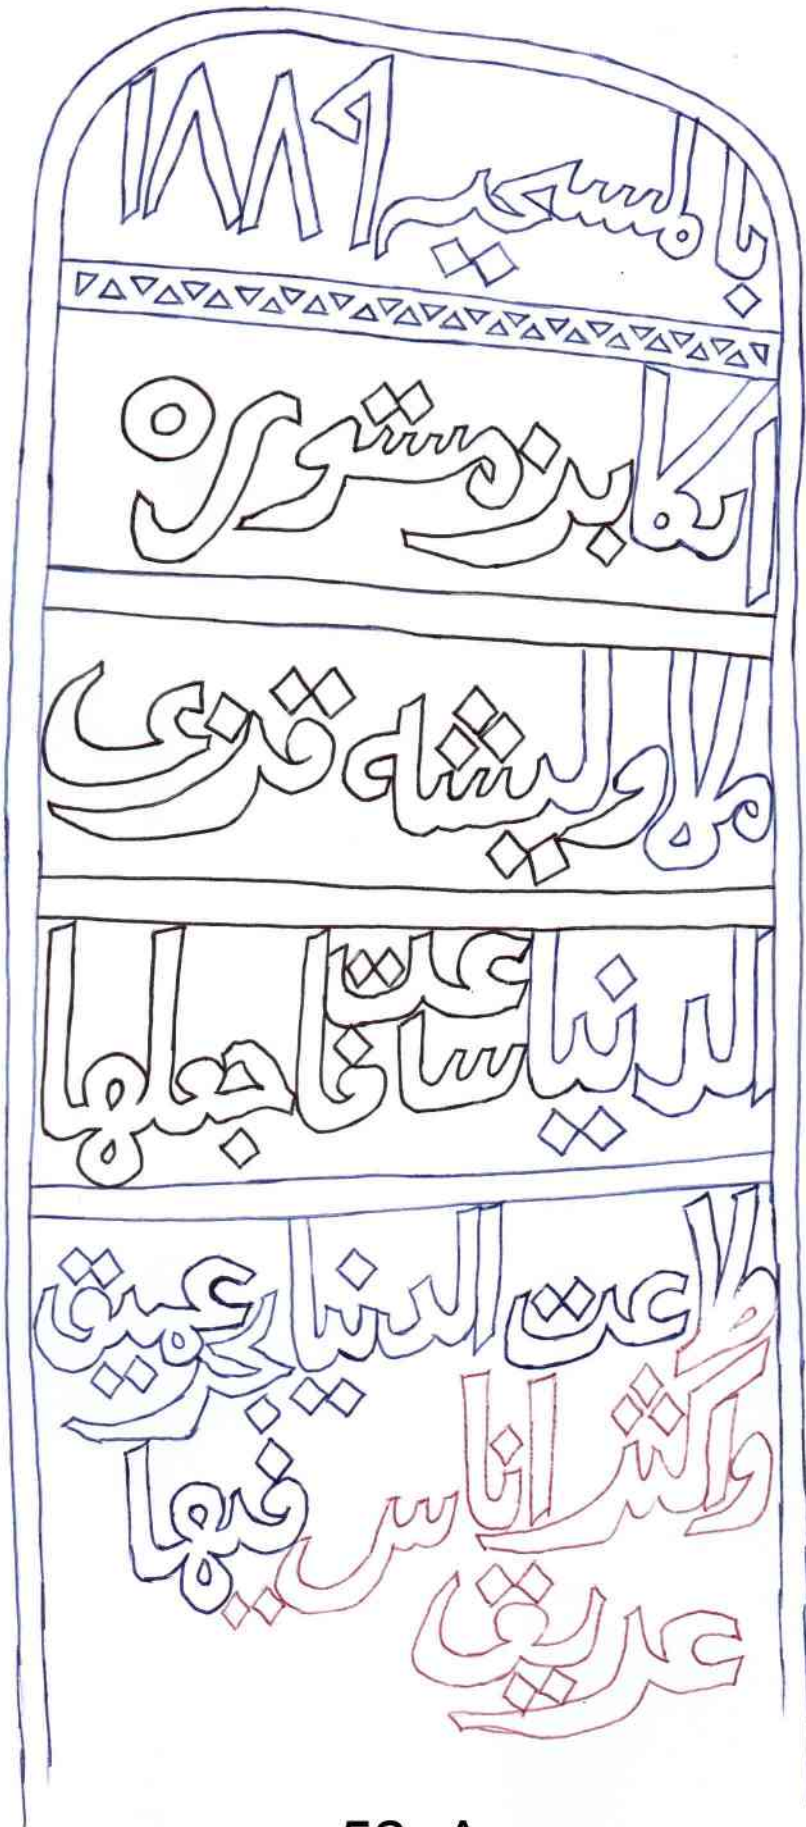 بالمسحيى ١٨٨٩
انكا بزمشوره
ملا وليشاه قرى
الدنيا ساعت فاجعلها
طاعت الدنيا بحر عميق
واكثر اناس فيها
عريق